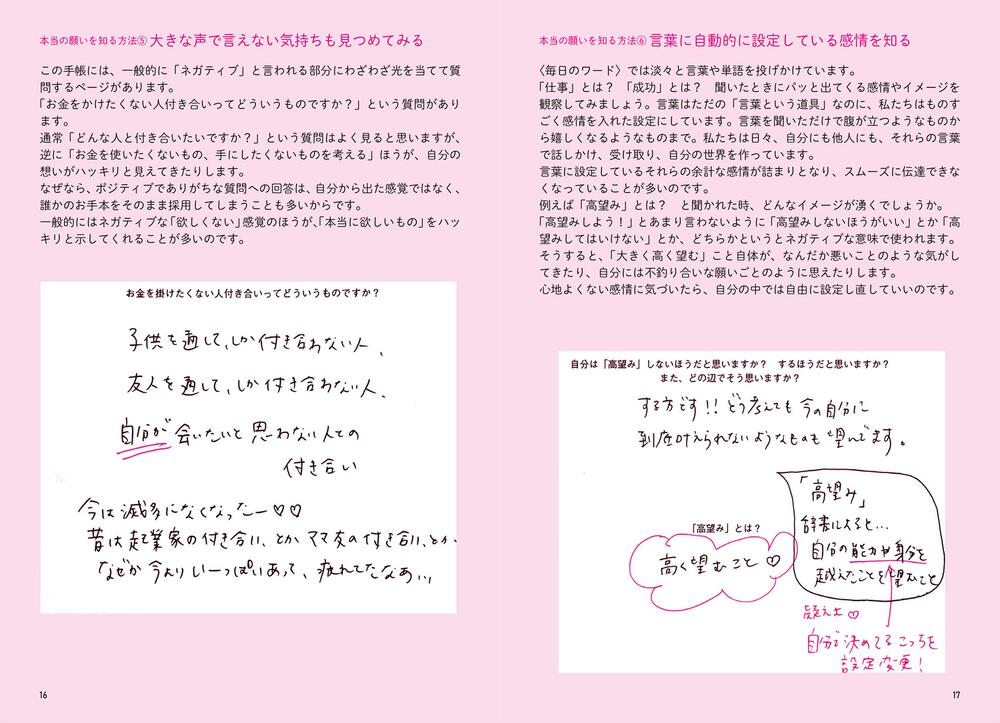 本当の願いを知る方法⑤ 大きな声で言えない気持ちも見つめてみる
この手帳には、一般的に「ネガティブ」と言われる部分にわざわざ光を当てて質
問するページがあります。
「お金をかけたくない人付き合いってどういうものですか？」という質問があり
ます。
通常「どんな人と付き合いたいですか？」という質問はよく見ると思いますが、
逆に「お金を使いたくないもの、手にしたくないものを考える」ほうが、自分の
想いがハッキリと見えてきたりします。
なぜなら、ポジティブでありがちな質問への回答は、自分から出た感覚ではなく、
誰かのお手本をそのまま採用してしまうことも多いからです。
一般的にはネガティブな「欲しくない」感覚のほうが、「本当に欲しいもの」をハッ
キリと示してくれることが多いのです。
お金を掛けたくない人付き合いってどういうものですか？
子供を通して、しか付き合わない人、
友人を通して、しか付き合わない人、
自分が会いたいと思わない人との
付き合い
今は滅多になくなったー♡♡
昔は起業家の付き合い、とか ママ友の付き合い、とか、
なぜか今よりいーっぱいあって、疲れてたなあ、、
16
本当の願いを知る方法⑥ 言葉に自動的に設定している感情を知る
〈毎日のワード〉では淡々と言葉や単語を投げかけています。
「仕事」とは？　「成功」とは？　聞いたときにパッと出てくる感情やイメージを
観察してみましょう。言葉はただの「言葉という道具」なのに、私たちはものす
ごく感情を入れた設定にしています。言葉を聞いただけで腹が立つようなものから
嬉しくなるようなものまで。私たちは日々、自分にも他人にも、それらの言葉
で話しかけ、受け取り、自分の世界を作っています。
言葉に設定しているそれらの余計な感情が詰まりとなり、スムーズに伝達できな
くなっていることが多いのです。
例えば「高望み」とは？　と聞かれた時、どんなイメージが湧くでしょうか。
「高望みしよう！」とあまり言わないように「高望みしないほうがいい」とか「高
望みしてはいけない」とか、どちらかというとネガティブな意味で使われます。
そうすると、「大きく高く望む」こと自体が、なんだか悪いことのような気がし
てきたり、自分には不釣り合いな願いごとのように思えたりします。
心地よくない感情に気づいたら、自分の中では自由に設定し直していいのです。
自分は「高望み」しないほうだと思いますか？　するほうだと思いますか？
また、どの辺でそう思いますか？
する方です!! どう考えても今の自分に
到底叶えられないようなものも望んでます。
「高望み」とは？
高く望むこと♡
「高望み」
辞書によると…
自分の能力や身分を
越えたことを望むこと
疑え士♡
自分で決めてるこっちを
設定変更！
17